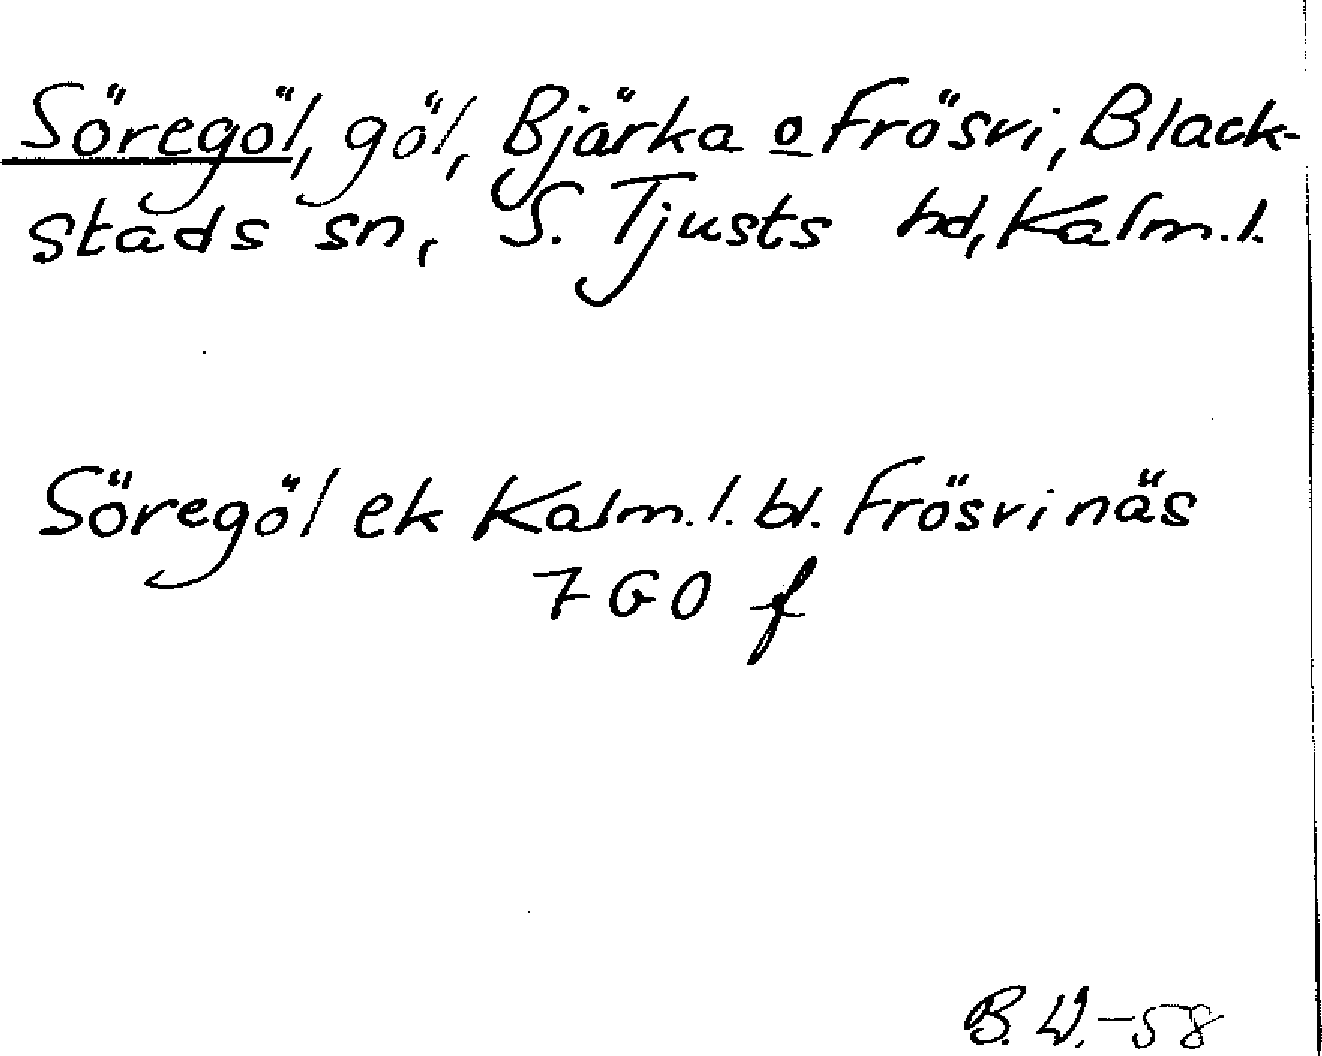 Söregöl, göl, Bjärka o Frösvi, Black-
stads sn, S. Tjusts hd, Kalm. l.
Söregöl ek Kalm. l. bl. Frösvinäs
7G0 f
B. W. -58